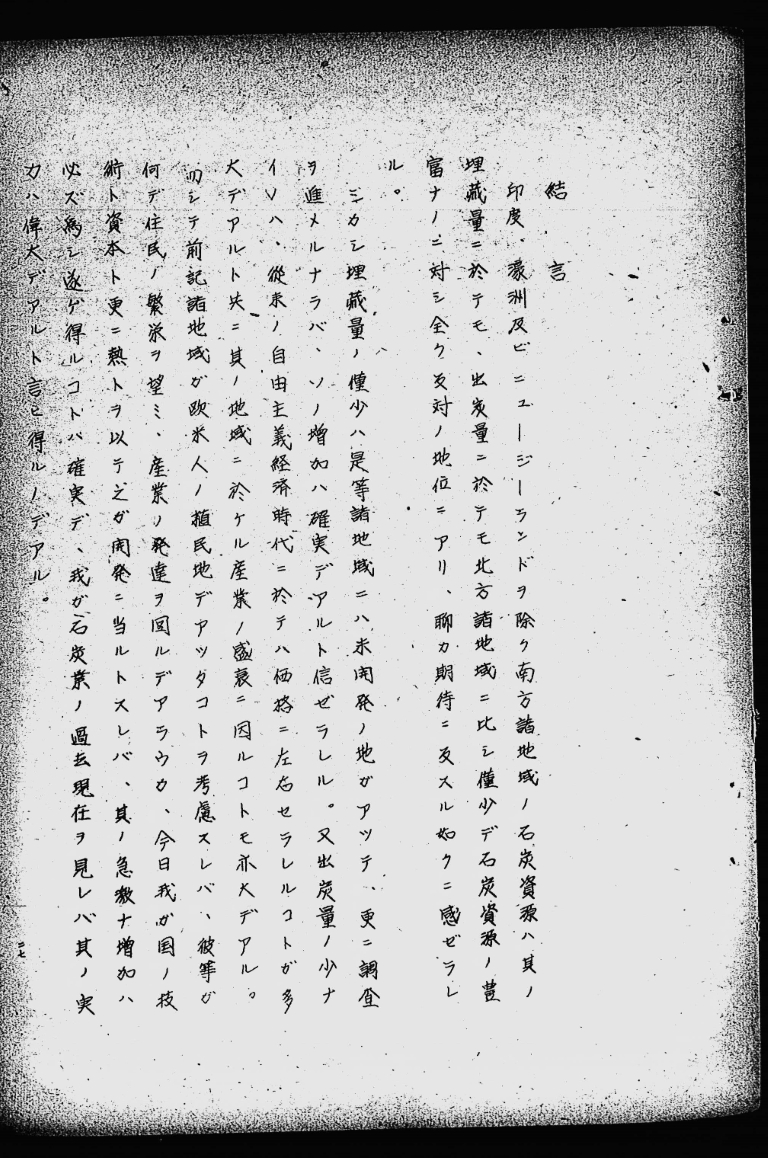 結言
印度、濠洲及ビニュージーランドヲ除ク南方諸地域ノ石炭資源ハ其ノ
埋蔵量ニ於テモ、出炭量ニ於テモ北方諸地域ニ比シ僅少デ石炭資源ノ豊
富ナノニ対シ全ク反対ノ地位ニアリ、聊カ期待ニ反スル如クニ感ゼラレ
ル。
シカシ埋蔵量ノ僅少ハ是等諸地域ニハ未開発ノ地ガアツテ、更ニ調査
ヲ進メルナラバ、ソノ増加ハ確実デアルト信ゼラレル。又出炭量ノ少ナ
イノハ、従来ノ自由主義経済時代ニ於テハ価格ニ左右セラレルコトガ多
大デアルト共ニ其ノ地域ニ於ケル産業ノ盛衰ニ因ルコトモ亦大デアル。
而シテ前記諸地域ガ欧米人ノ植民地デアツタコトヲ考慮スレバ、彼等ガ
何デ住民ノ繁栄ヲ望ミ、産業ノ発達ヲ図ルデアラウカ、今日我ガ国ノ技
術ト資本ト更ニ熱トヲ以テ之ガ開発ニ当ルトスレバ、其ノ急激ナ増加ハ
必ズ為シ遂ゲ得ルコトハ確実デ、我ガ石炭業ノ過去現在ヲ見レバ其ノ実
力ハ偉大デアルト言ヒ得ルノデアル。
二七